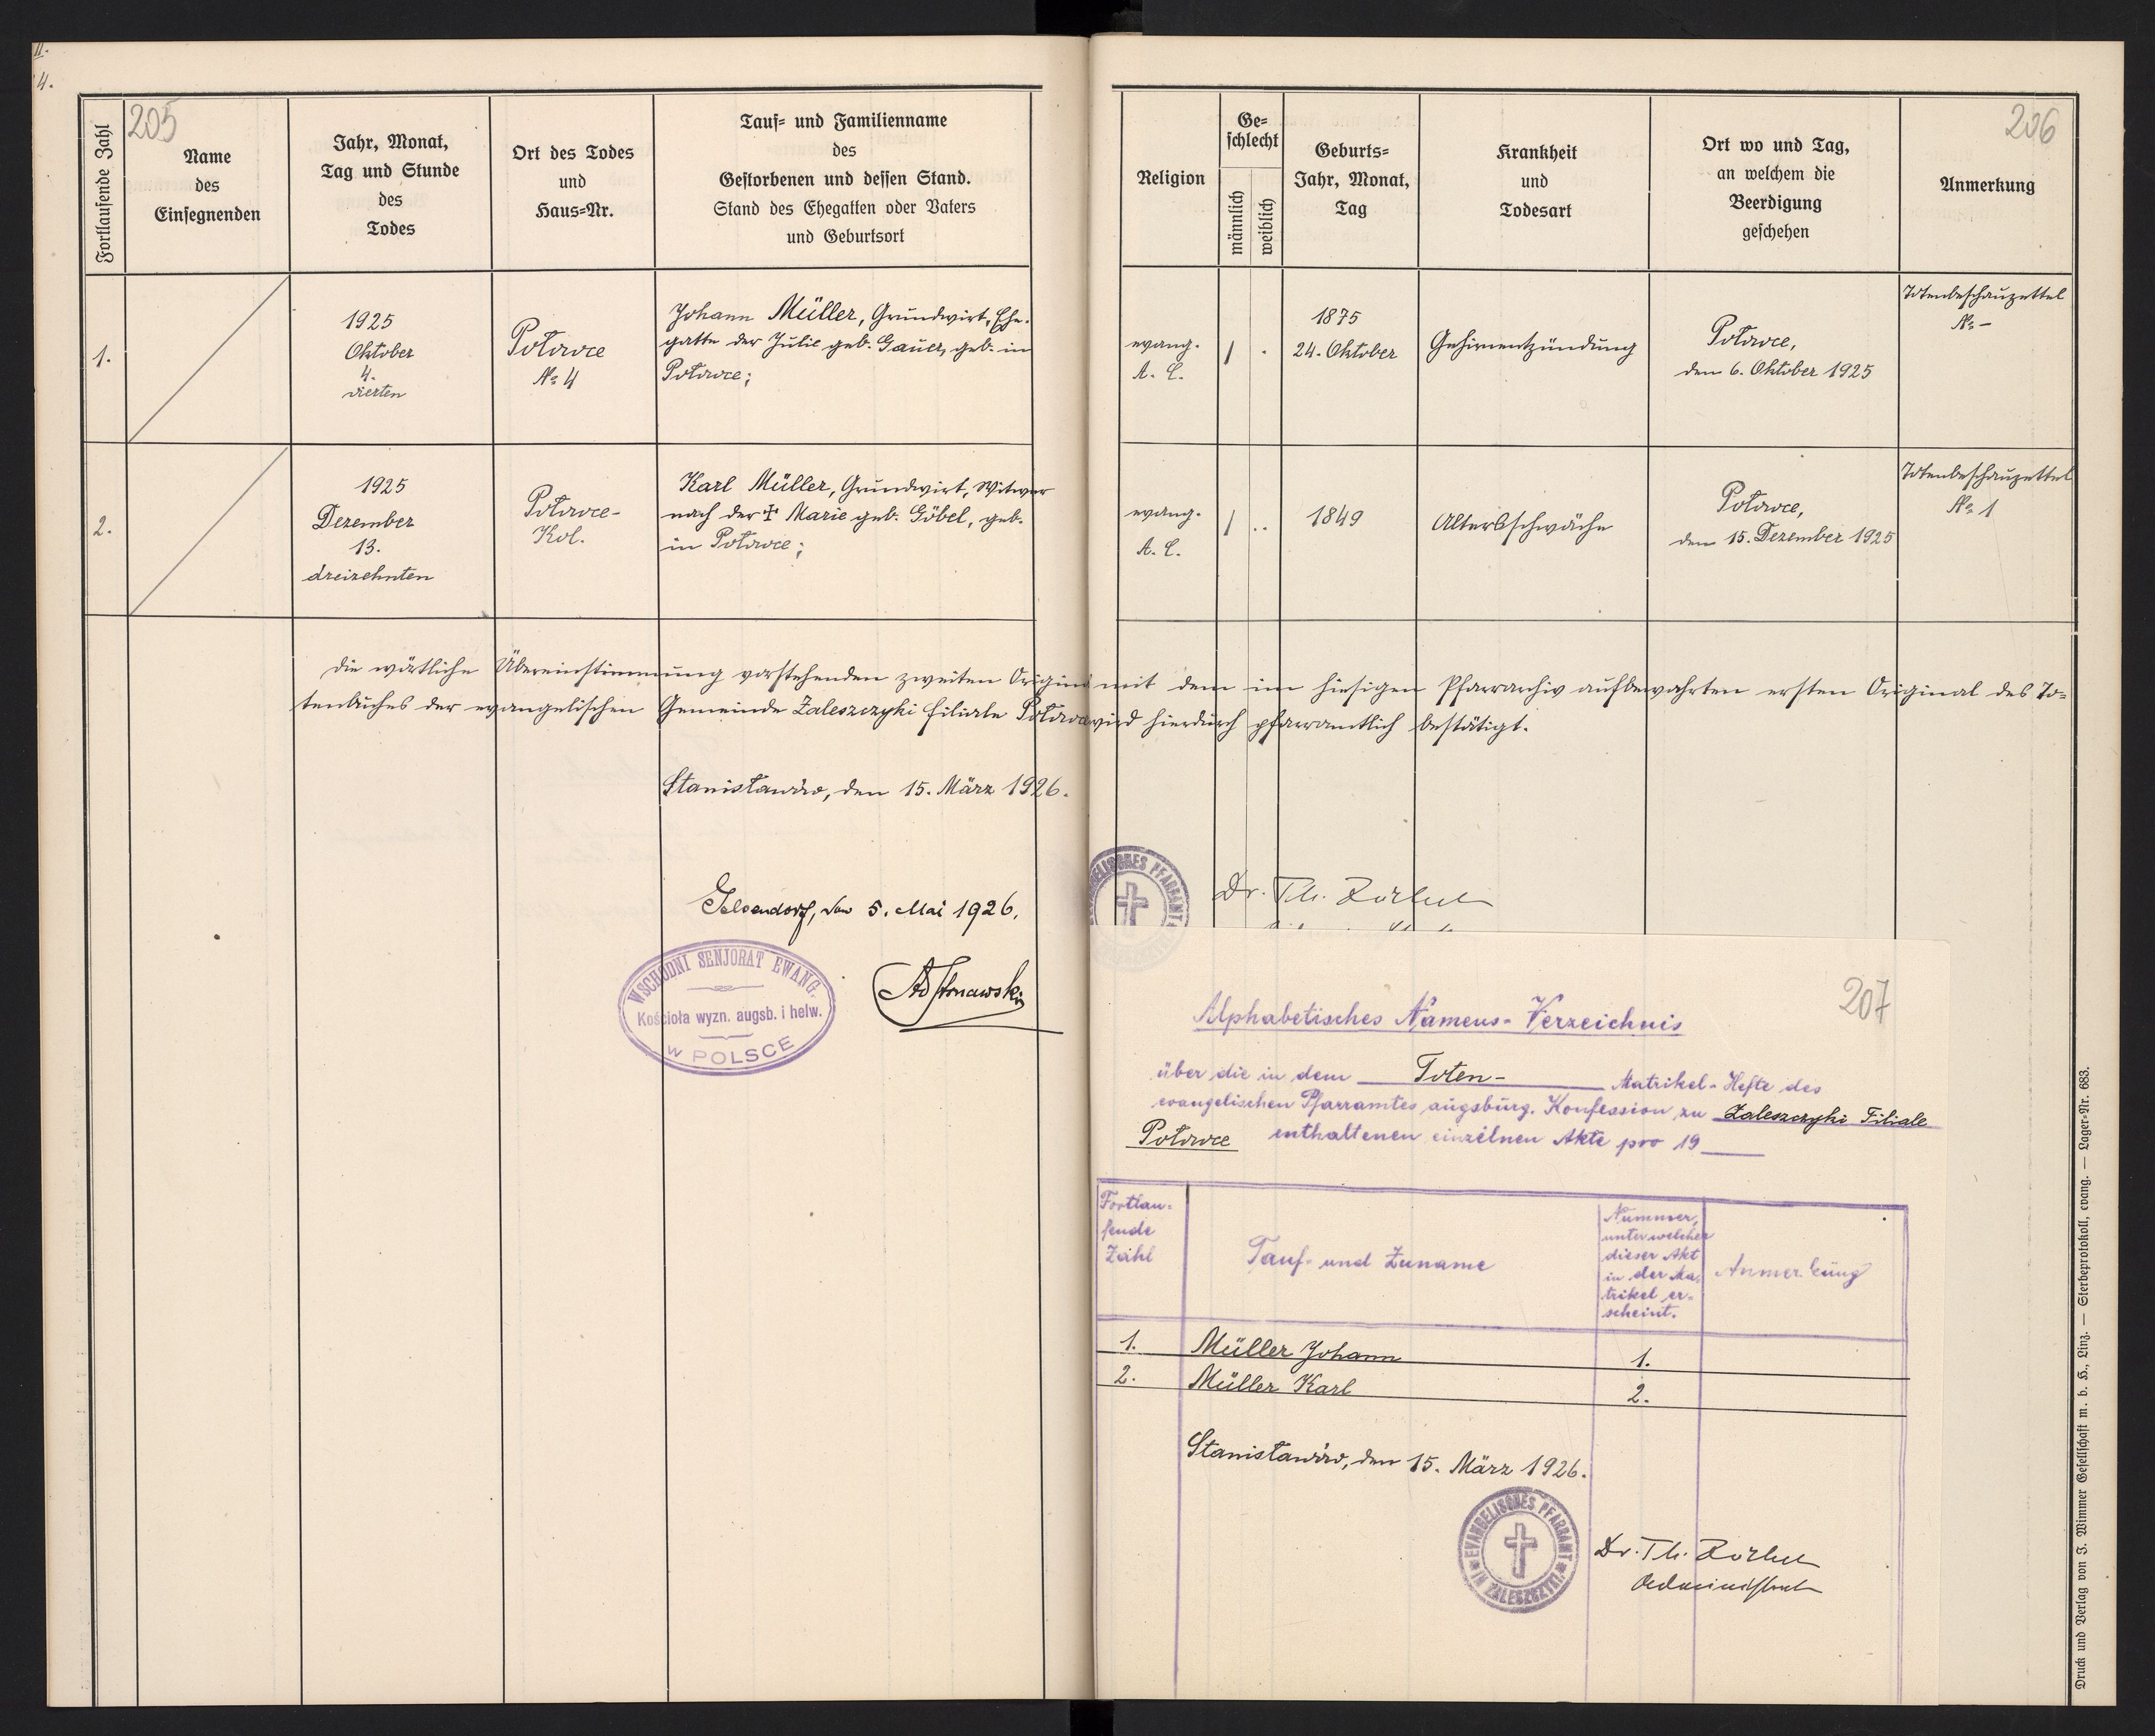 II.
4.
205
Fortlaufende Zahl
Name
des
Einsegnenden
Jahr, Monat,
Tag und Stunde
des
Todes
Ort des Todes
und
Haus-Nr.
Tauf- und Familienname
des
Gestorbenen und dessen Stand.
Stand des Ehegatten oder Vaters
und Geburtsort
1.
1925
Oktober
4.
vierten
Potowce
№ 4
Johann Müller, Grundwirt, Ehe-
gatte der Julie geb. Gauer, geb. in
Potowce;
2.
1925
Dezember
13.
dreizehnten
Potowce-
Kol.
Karl Müller, Grundwirt, Witwer
nach der † Marie geb. Göbel, geb.
in Potowce;
206
Religion
Ge-
schlecht
männlich
weiblich
Geburts-
Jahr, Monat,
Tag
Krankheit
und
Todesart
Ort wo und Tag,
an welchem die
Beerdigung
geschehen
Anmerkung
evang.
A. C.
1
1875
24. Oktober
Gehirnentzündung
Potowce,
den 6. Oktober 1925
Totenbeschauzettel
№ –
evang.
A. C.
1
1849
Altersschwäche
Potowce,
den 15. Dezember 1925
Totenbeschauzettel
№ 1
Die wörtliche Übereinstimmung vorstehenden zweiten Original mit dem im hiesigen Pfarrarchiv aufbewahrten ersten Original des To-
tenbuches der evangelischen Gemeinde Zaleszczyki Filiale Potowce wird hierdurch pfarramtlich bestätigt.
Stanisławów, den 15. März 1926.
EVANGELISCHES PFARRAMT
Dr. Th. Zöckler
Gelsendorf, den 5. Mai 1926.
WSCHODNI SENJORAT EWANG.
Kościoła wyzn. augsb. i helw.
W POLSCE
207
Alphabetisches Namens-Verzeichnis
über die in dem Toten- Matrikel-Hefte des
evangelischen Pfarramtes augsburg. Konfession zu Zaleszczyki Filiale
Potowce enthaltenen einzelnen Akte pro 19
Fortlau-
fende
Zahl
Tauf- und Zuname
Nummer,
unter welcher
dieser Akt
in der Ma-
trikel er-
scheint.
Anmerkung
1. Müller Johann 1.
2. Müller Karl 2.
Stanisławów, den 15. März 1926.
EVANGELISCHES PFARRAMT
IN ZALESZCZYKI
Dr. Th. Zöckler
Administrator
Druck und Verlag von J. Wimmer Gesellschaft m. b. H., Linz. — Sterbeprotokoll, evang. — Lager-Nr. 683.